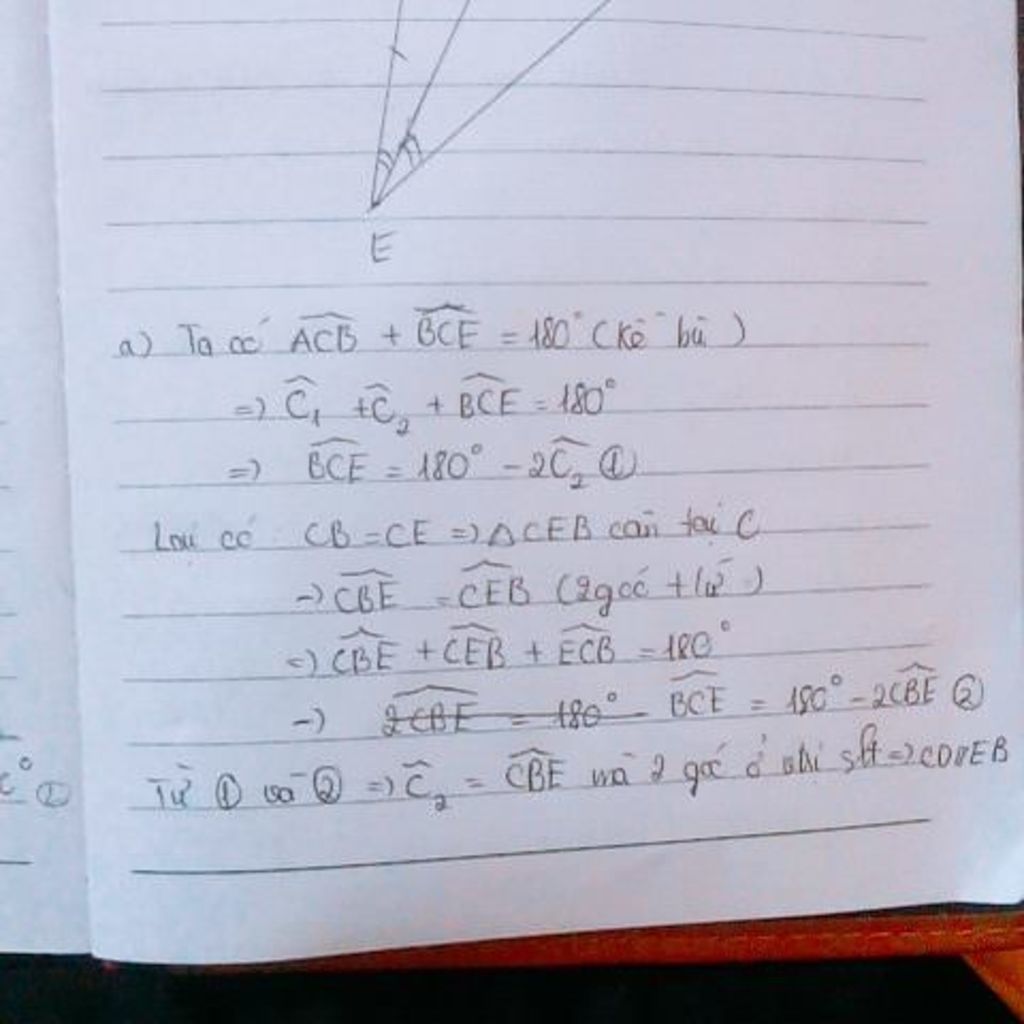 E
a) Ta có ACB + BCE = 180° (Kề bù)
=> Ĉ₁ + Ĉ₂ + BCE = 180°
=> BCE = 180° - 2Ĉ₂ ①
Lại có CB = CE => △CEB cân tại C
=> CBE = CEB (2 góc t/ứ)
=> CBE + CEB + ECB = 180°
=> 2CBE = 180° - BCE = 180° - 2CBE ②
c° ①
Từ ① và ② => Ĉ₂ = CBE mà 2 góc ở vhi slt => CD//EB